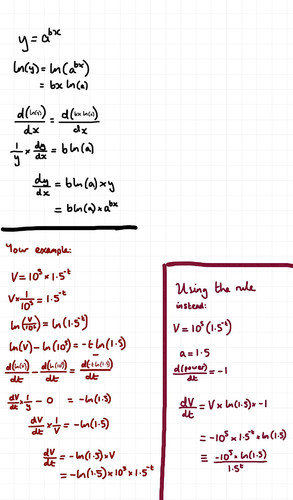 y = a^{bx}
ln(y) = ln(a^{bx})
= bx ln(a)
d(ln(y))/dx = d(bx ln(a))/dx
1/y × dy/dx = b ln(a)
dy/dx = b ln(a) × y
= b ln(a) × a^{bx}
Your example:
V = 10^5 × 1.5^{-t}
V × 1/10^5 = 1.5^{-t}
ln(V/10^5) = ln(1.5^{-t})
ln(V) - ln(10^5) = -t ln(1.5)
d(ln(V))/dt - d(ln(10^5))/dt = d(-t ln(1.5))/dt
dV/dt × 1/y - 0 = -ln(1.5)
dV/dt × 1/V = -ln(1.5)
dV/dt = -ln(1.5) × V
= -ln(1.5) × 10^5 × 1.5^{-t}
Using the rule
instead:
V = 10^5 (1.5^{-t})
a = 1.5
d(power)/dt = -1
dV/dt = V × ln(1.5) × -1
= -10^5 × 1.5^{-t} × ln(1.5)
≡ -10^5 × ln(1.5)/1.5^t